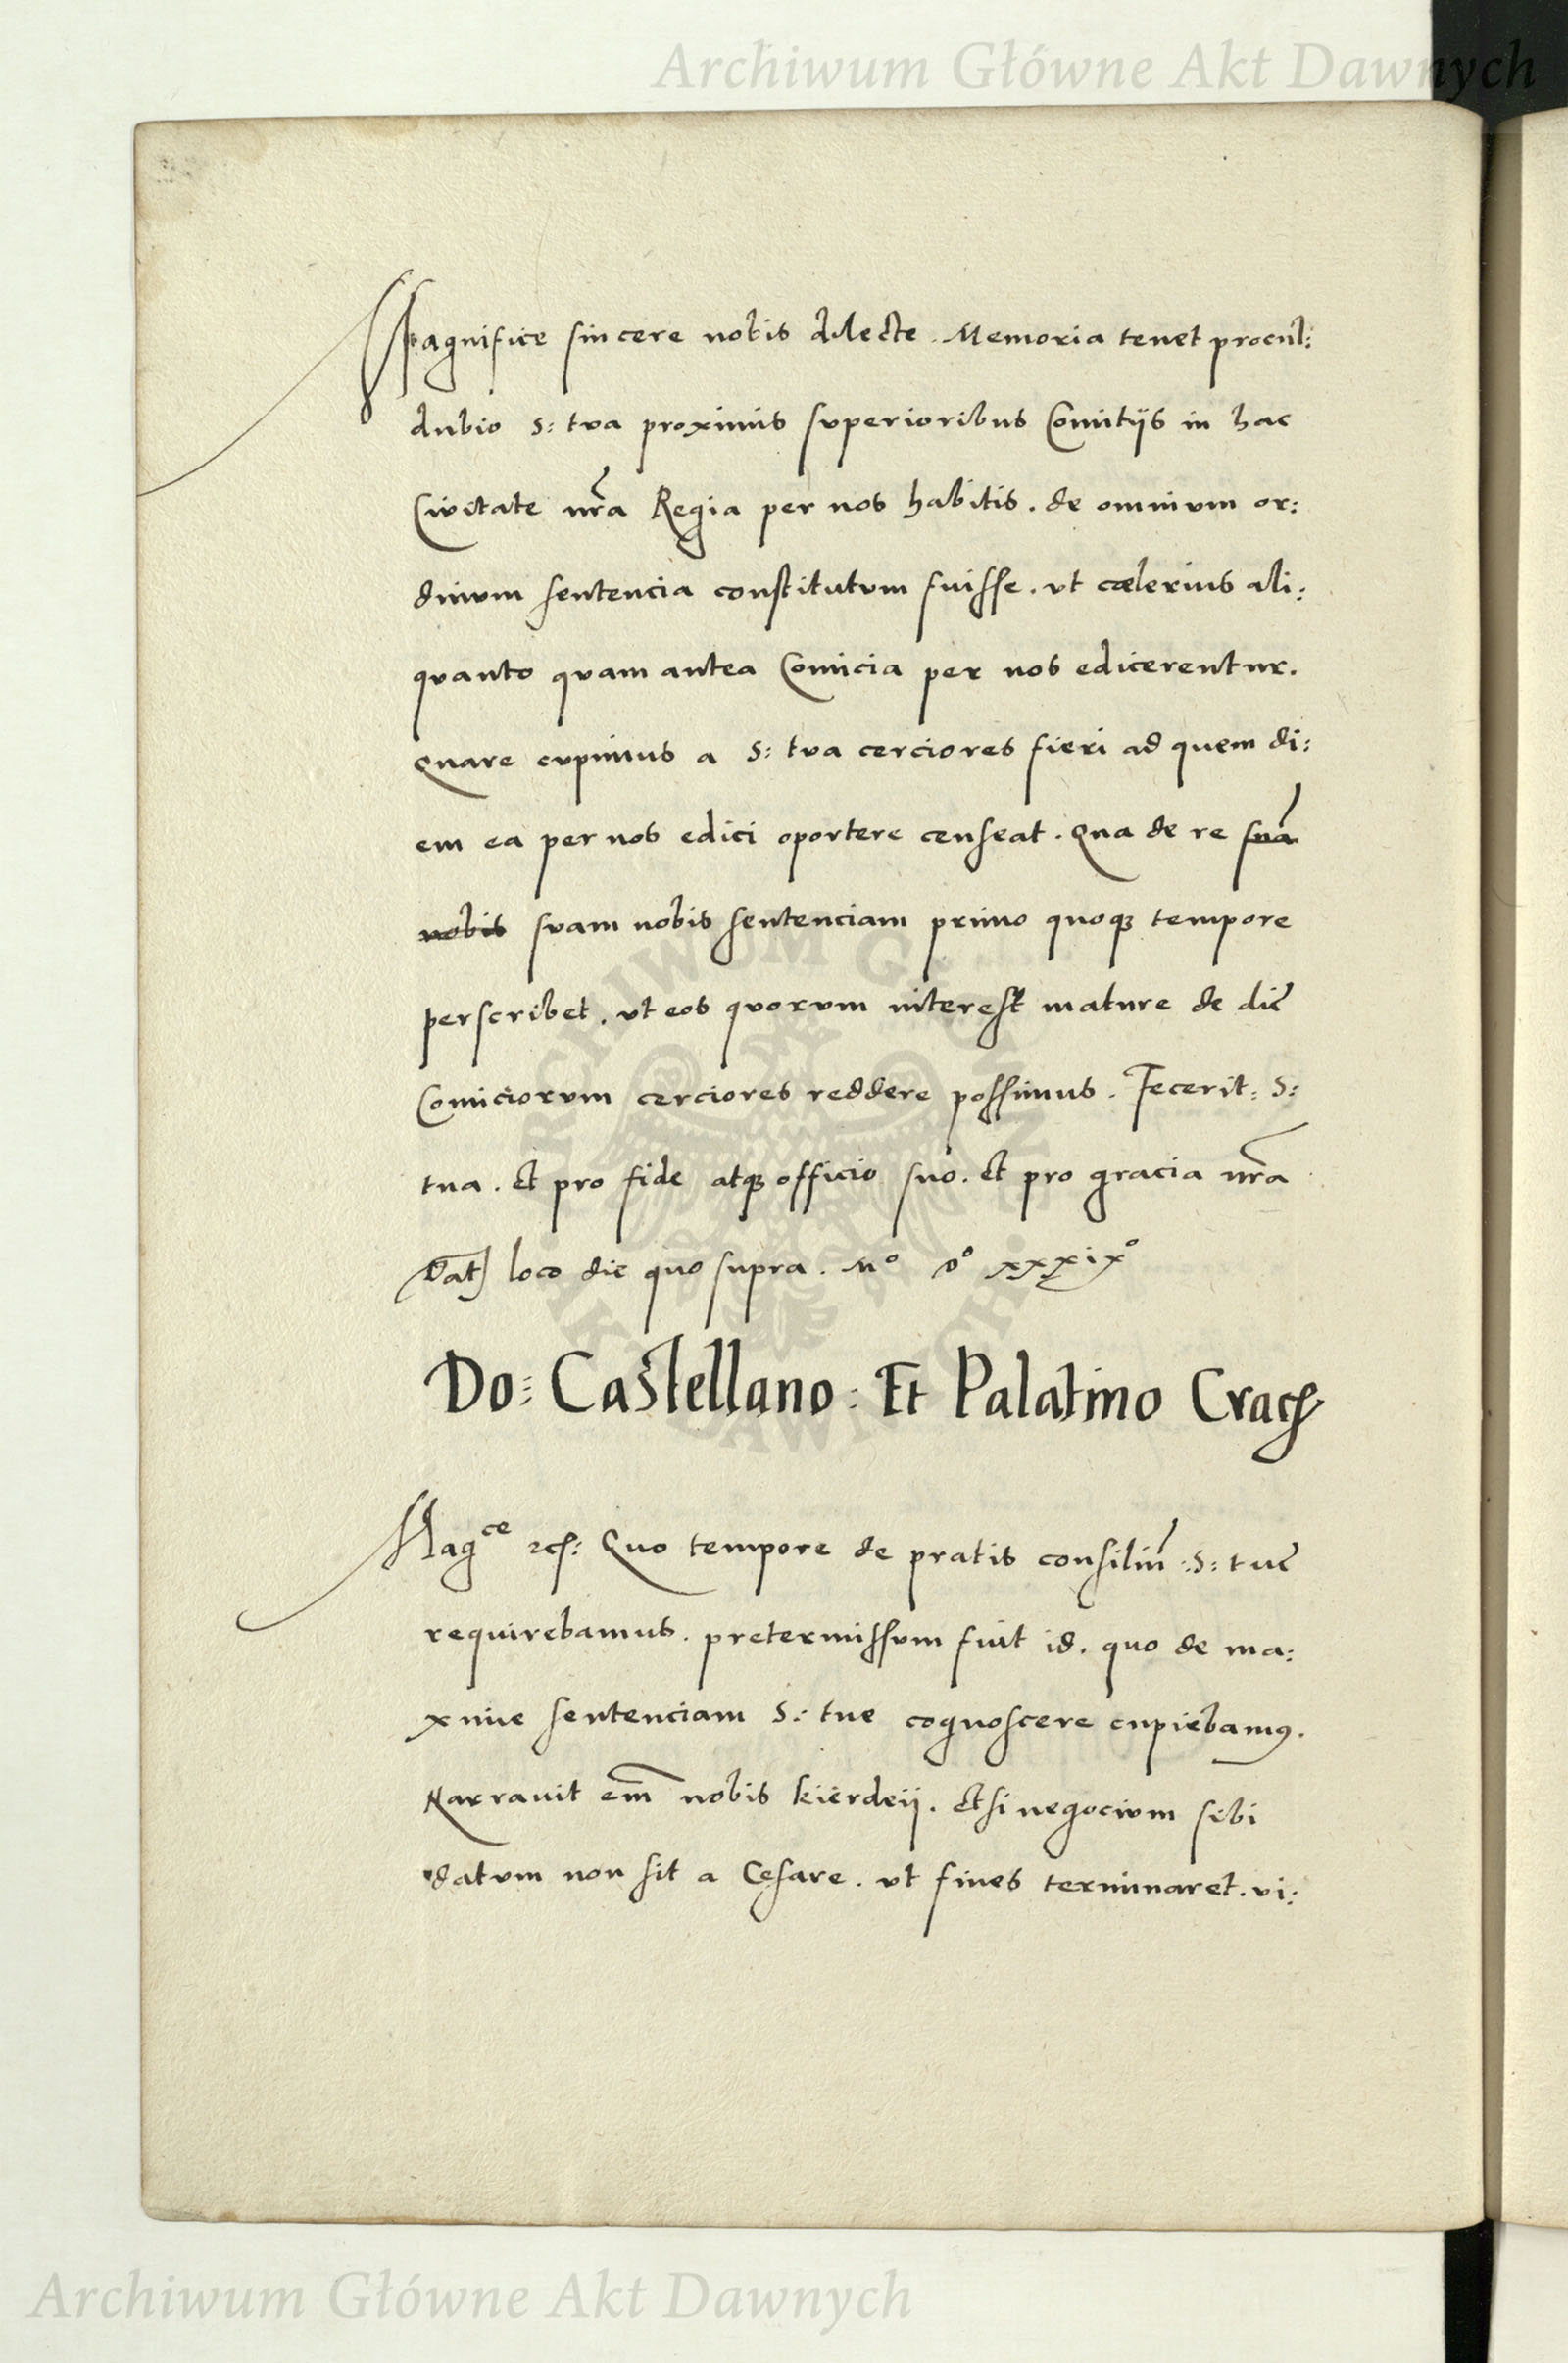 Archiwum Główne Akt Dawnych
Magnifice sincere nobis dilecte. Memoria tenet procul:
dubio S: tva proximis svperioribus Comitijs in hac
Civitate nr̃a Regia per nos habitis. de omnivm or:
dinvm sentencia constitutvm fuisse. vt cælerius ali:
qvanto qvam antea Comicia per nos edicerentur.
Quare cvpimus a S: tva cerciores fieri ad quem di:
em ea per nos edici oportere censeat. Qua de re suã
nobis svam nobis sentenciam primo quoqꝫ tempore
perscribet. vt eos qvorvm interest mature de diē
Comiciorvm cerciores reddere possimus. Fecerit: S:
tua. et pro fide atqꝫ officio suo. et pro gracia nr̃a
Dat̃ loco die quo supra. Mº Dº xxxixº
Do: Castellano: Et Palatino Cracꝭ
Magce ꝛcꝭ: Quo tempore de pratis consiliũ :S: tuē
requirebamus. pretermissvm fuit id. quo de ma:
xime sentenciam S: tue cognoscere cupiebamꝰ.
Narrauit em̃ nobis kierdeij. etsi negocivm sibi
datvm non sit a Cęsare. vt fines terminaret. vi:
ARCHIWUM GŁÓWNE AKT DAWNYCH
Archiwum Główne Akt Dawnych